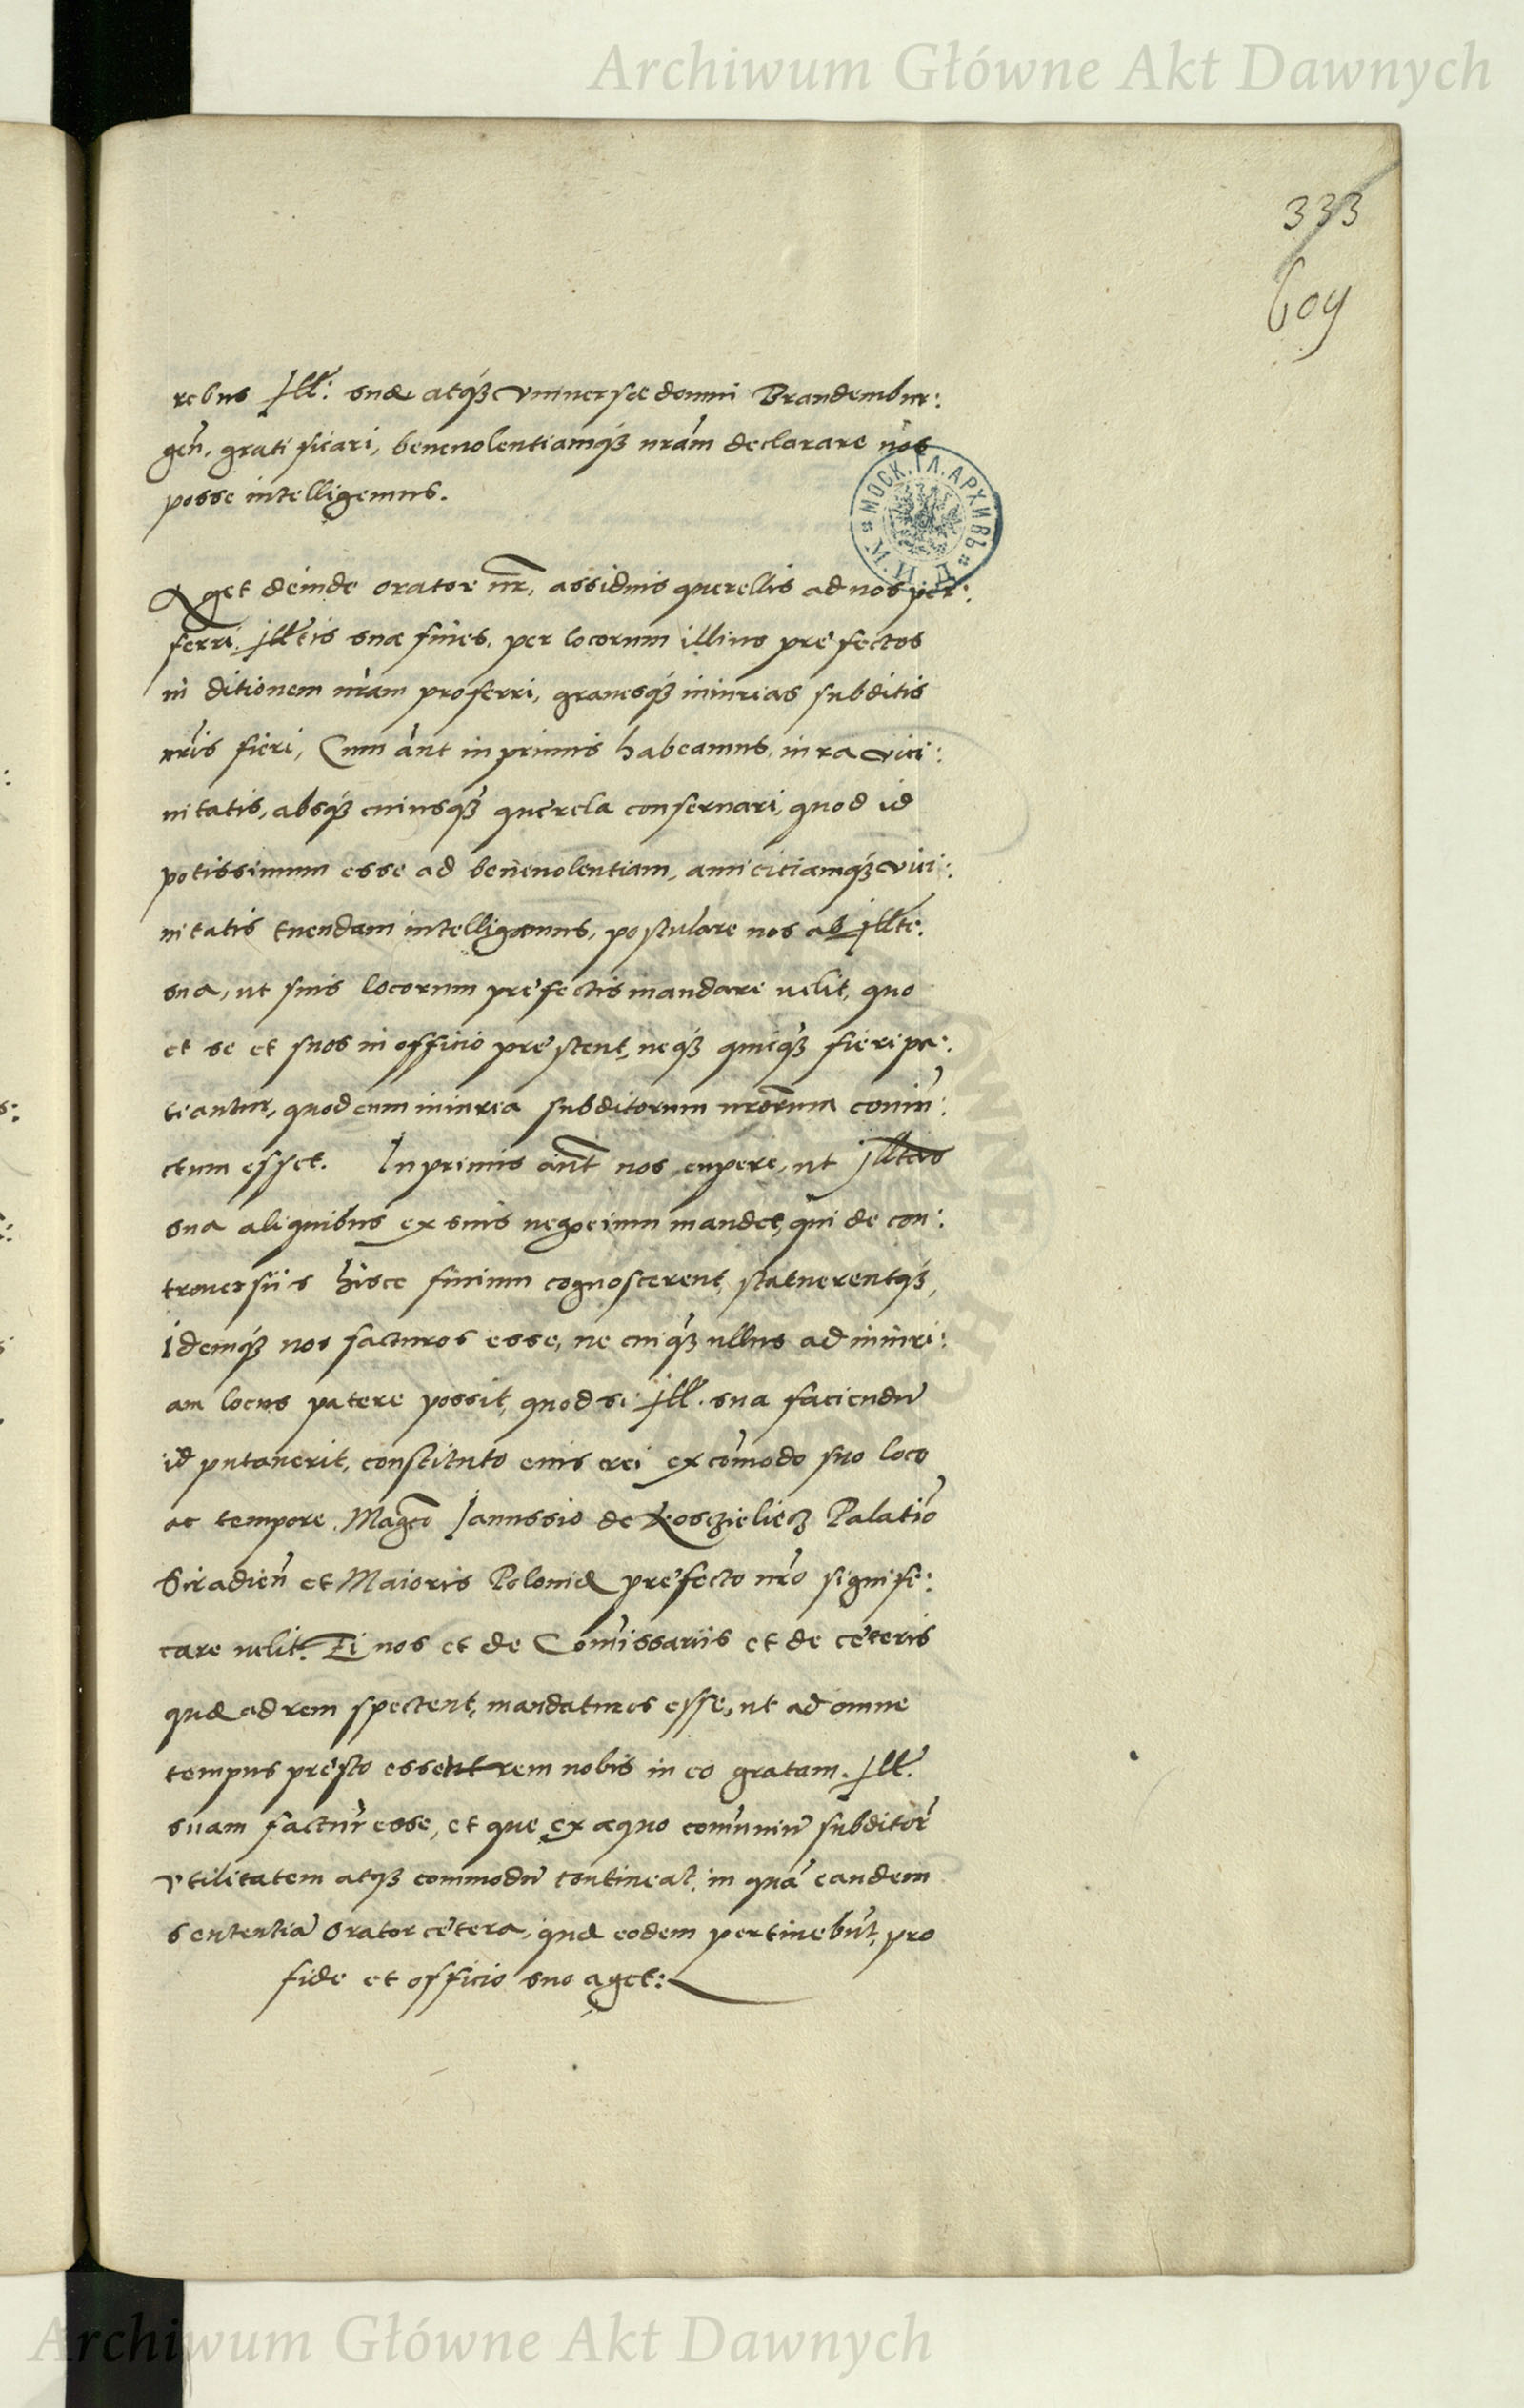 Archiwum Główne Akt Dawnych
333
609
rebus Ill: suæ atq́ꝫ vniversæ domui Brandembur:
geñ. gratificari, benevolentiamq́ꝫ nr̃am declarare nos
posse intelligemus.
МОСК. ГЛ. АРХИВЪ М. И. Д.
Aget deinde orator nr̃, assiduis querellis ad nos per:
ferri, Illtis suæ fines, per locorum illius præfectos
in ditionem nr̃am proferri, grauesq́ꝫ iniurias subditis
nr̃is fieri, Cum aũt inprimis habeamus, iura vici:
nitatis, absq́ꝫ cuiusq́ꝫ querela conseruari, quod id
potissimum esse ad beneuolentiam, amicitiamq́ꝫ vici:
nitatis tuendam intelligamus, postulare nos ab Illte.
sua, ut suis locorum præfectis mandare uelit, quo
et se et suos in officio præstent, neq́ꝫ quicq́ꝫ fieri pa:
tiantur, quod cum iniuria subditorum nr̃orum coniũ:
ctum esset. Inprimis aũt nos cupere, ut Illtas
sua aliquibus ex suis negocium mandet, qui de con:
trouersiis hisce finium cognoscerent, statuerentq́ꝫ,
Idemq́ꝫ nos facturos esse, ne cuiq́ꝫ ullus ad iniuri:
am locus patere possit, quod si Ill. sua faciendũ
id putauerit, constituto eius rei ex cõmodo suo loco
ac tempore. Magco Janussio de Kosczieliecz Palatiõ
Siradieñ et Maioris Poloniæ præfecto nr̃o signifi:
care uelit. Ei nos et de Com̃issariis et de cæteris
quæ ad rem spectent, mandaturos esse, ut ad omne
tempus præsto essent rem nobis in eo gratam. Ill.
suam facturã esse, et que ex æquo com̃uniũ subditorũ
vtilitatem atqꝫ commodũ contineat, in quã eandem
sententiã Orator cætera, quæ eodem pertinebũt, pro
fide et officio suo aget:
Archiwum Główne Akt Dawnych